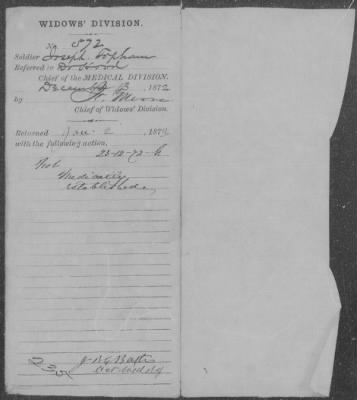 WIDOWS' DIVISION.
No. 872
Soldier Joseph Topham
Referred to Dr Hood
Chief of the MEDICAL DIVISION.
December 13, 1872
by
Chief of Widows' Division.
Returned Jan. 2 1873
with the following action.
23-12-72-h
Not
Medically
established,